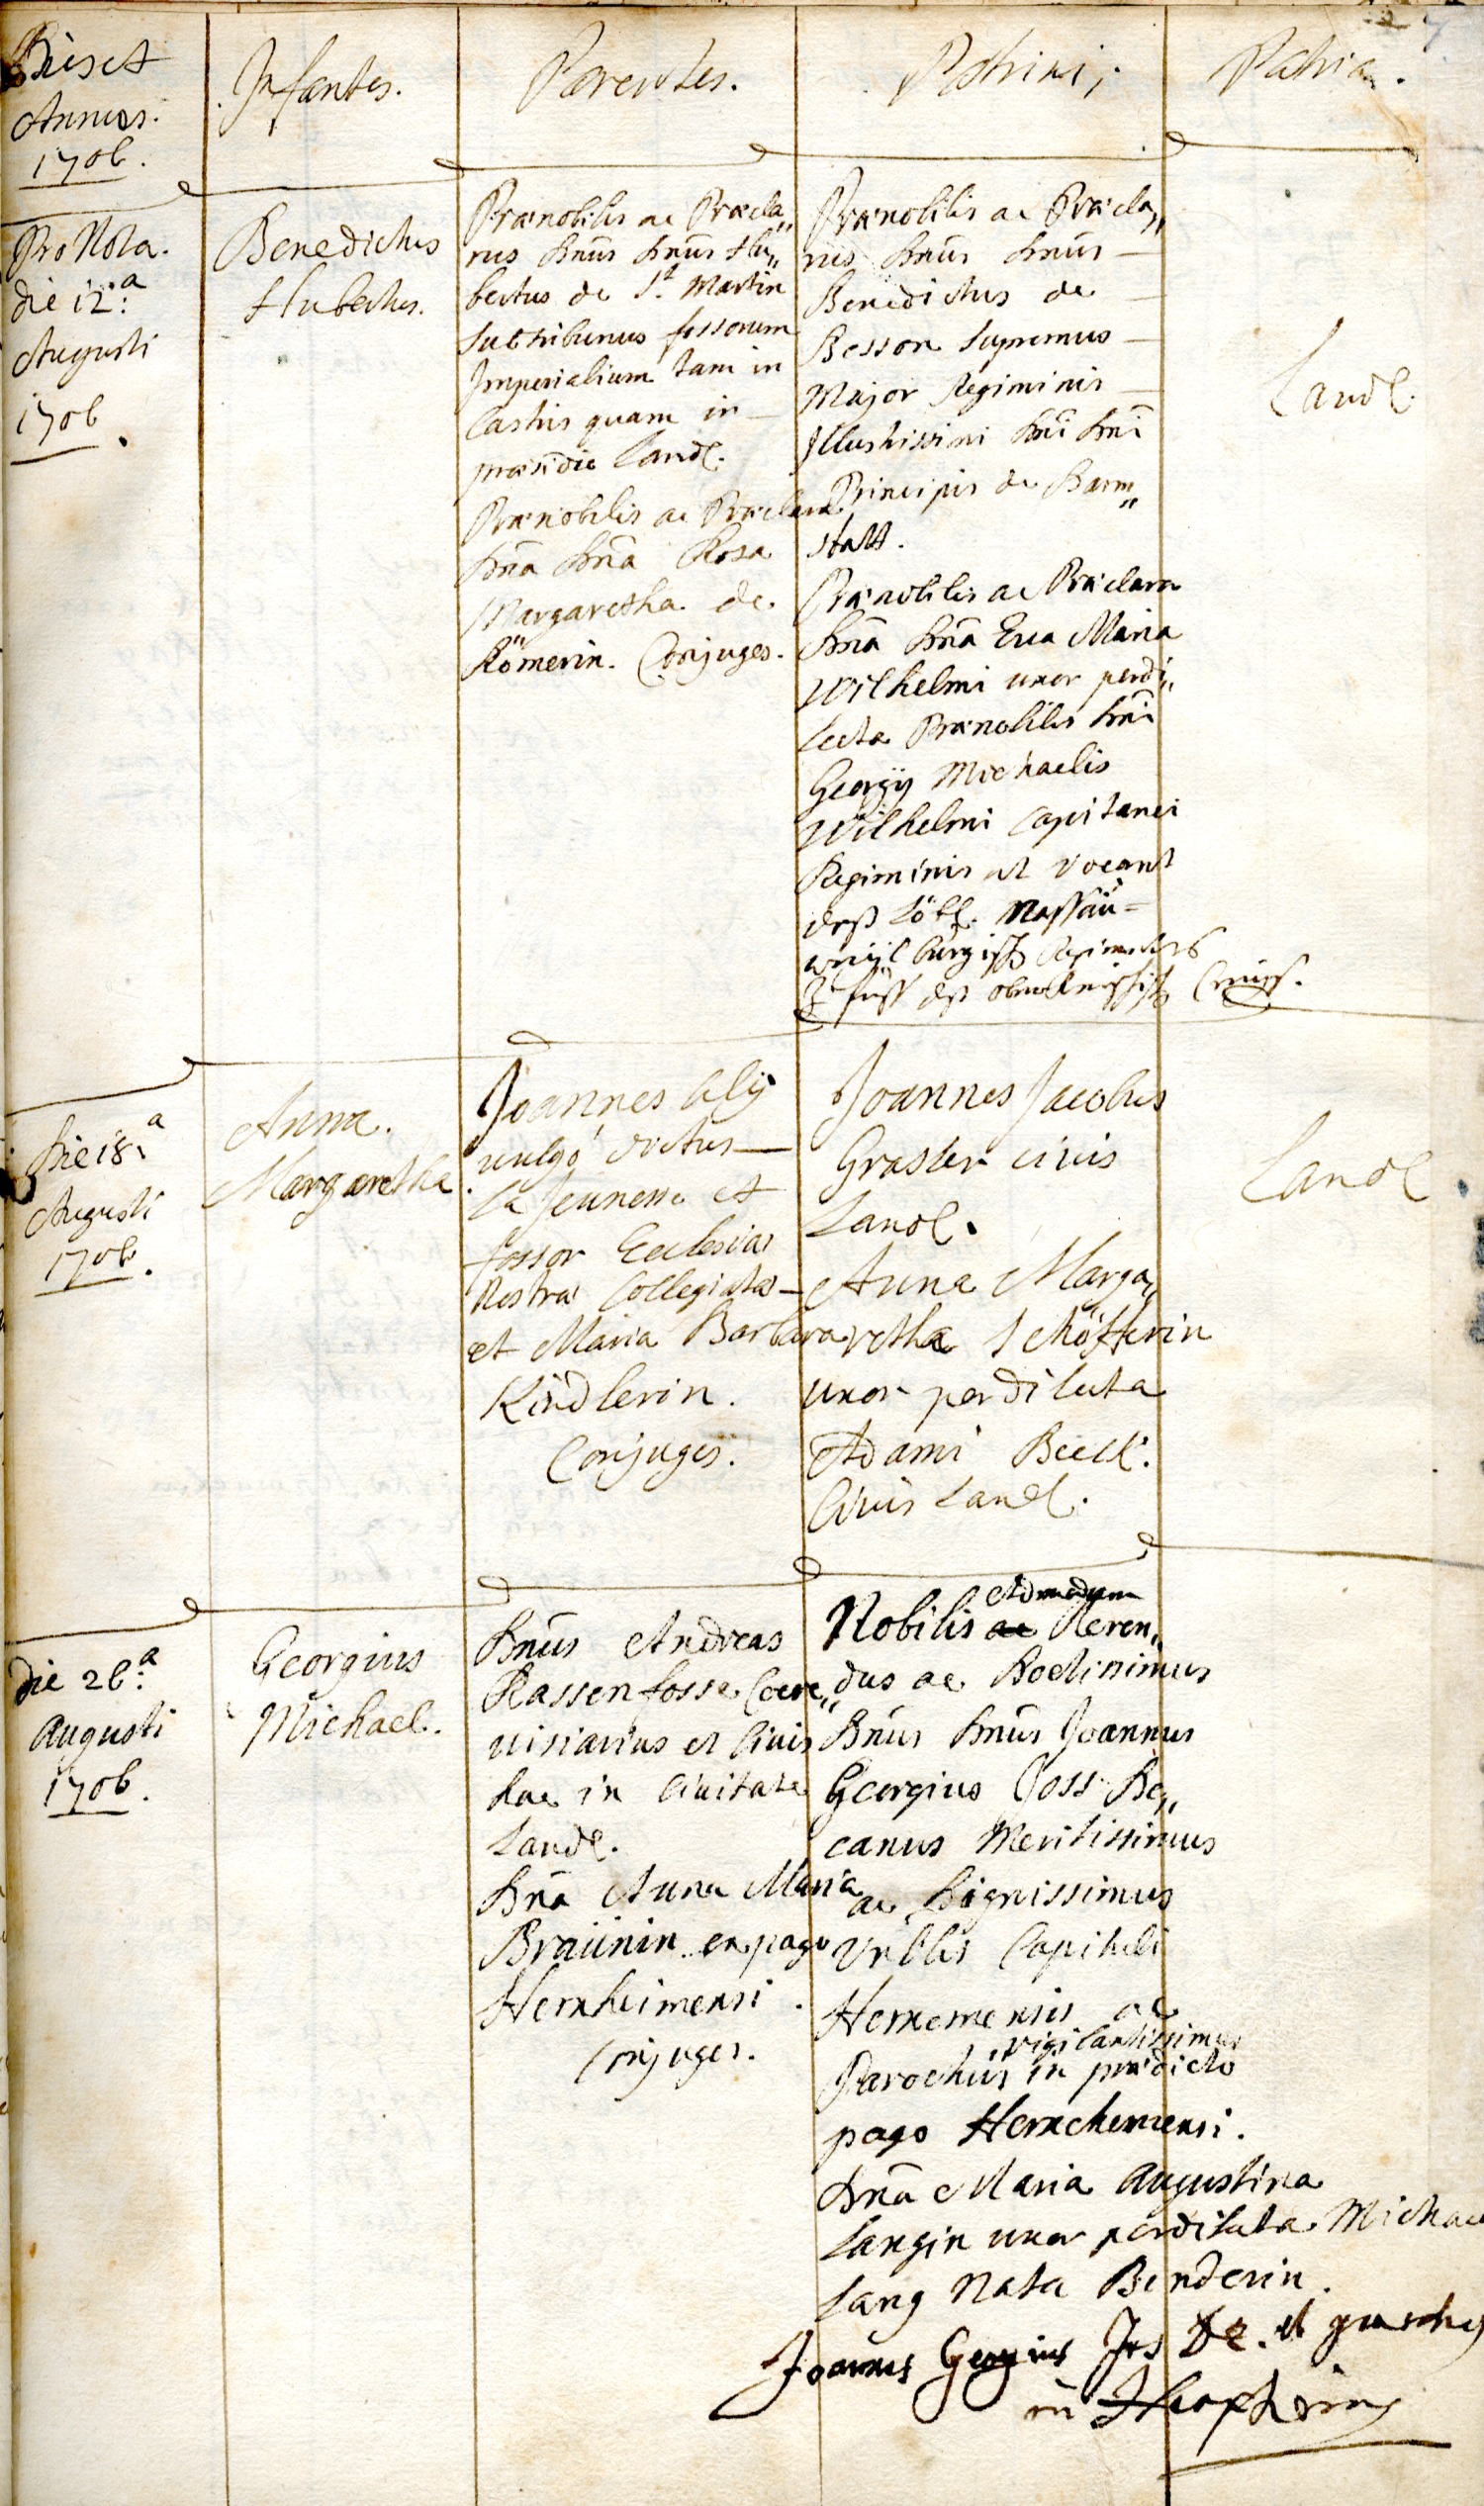 Dies et
Annus.
1706.
Infantes.
Parentes.
Patrini,
Patria.
Pro Nota.
die 12.a
Augusti
1706
Benedictus
Hubertus.
Prænobilis ac Præcla„
rus Dnus Dnus Hu„
bertus de St. Martin
Subtribunus fossorum
Imperialium tam in
Castris quam in
præsidio Land.
Prænobilis ac Præclara
Dna Dna Rosa
Margaretha de
Römerin. Conjuges.
Prænobilis ac Præcla„
rus Dnus Dnus
Benedictus de
Besson Supremus
Major Regiminis
Illustrissimi Dni Dni
Principis de Darm„
statt.
Prænobilis ac Præclara
Dna Dna Eva Maria
Wilhelmi uxor perdi„
lecta Prænobilis Dni
Georgij Michaelis
Wilhelmi Capitanei
Regiminis ut vocant
deß Löbl. Nassau=
weijlburgisch Regiments
Z fuß deß oberRheinisch Creiyß.
Land.
Die 18.a
Augusti
1706.
Anna
Margaretha.
Joannes
vulgò dictus
la Jeunesse et
fossor Ecclesiæ
Nostræ Collegiatæ
et Maria Barbara
Kindlerin.
Conjuges.
Joannes Jacobus
Graster civis
Land.
Anna Marga„
retha Schöfferin
uxor perdilecta
Adami Beeck.
Civis Land.
Land
die 26.a
Augusti
1706.
Georgius
Michael.
Dnus Andreas
Rassenfosse Cere„
visiarius et Civis
hac in Civitate
Land.
Dna Anna Maria
Braünin ex pago
Herxheimensi.
Conjuges.
Admodum
Nobilis ac Reveren„
dus ac Doctissimus
Dnus Dnus Joannes
Georgius Joss De„
canus Meritissimus
ac Dignissimus
Vnblis Capituli
Herxemensis ac
vigilantissimus
Parochus in prædicto
pago Herxhemensi.
Dna Maria Augustina
Langin uxor perdilecta Michael
Lang Nata Benderin.
Joannes Georgius Jos De. et parochus
in Herxheim